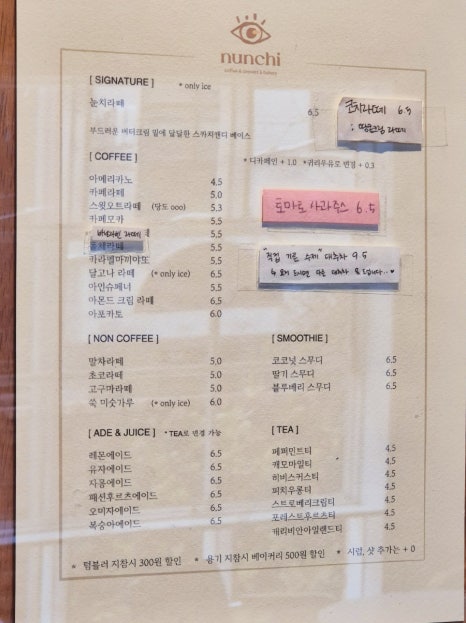 nunchi
[ SIGNATURE ] * only ice
눈치라떼 6.5
부드러운 버터크림 밑에 달달한 스카치캔디 베이스
6.5
[ COFFEE ] * 디카페인 + 1.0 *귀리우유로 변경 + 0.3
아메리카노 4.5
카페라떼 5.0
스윗오트라떼 (당도 ooo) 5.3
카페모카 5.5
라떼 5.5
카라멜마끼아또 5.5
달고나 라떼 (* only ice) 6.5
아인슈페너 5.5
아몬드 크림 라떼 6.5
아포카토 6.0
토마토 사과주스 6.5
"직접 기름 수제" 대추차 9.5
[ NON COFFEE ]
말차라떼 5.0
초코라떼 5.0
고구마라떼 5.0
쑥 미숫가루 (* only ice) 6.0
[ SMOOTHIE ]
코코넛 스무디 6.5
딸기 스무디 6.5
블루베리 스무디 6.5
[ ADE & JUICE ] * TEA로 변경 가능
레몬에이드 6.5
유자에이드 6.5
자몽에이드 6.5
패션후르츠에이드 6.5
오미자에이드 6.5
복숭아에이드 6.5
[ TEA ]
페퍼민트티 4.5
캐모마일티 4.5
히비스커스티 4.5
피치우롱티 4.5
스트로베리크림티 4.5
포레스트후르츠티 4.5
캐리비안아일랜드티 4.5
* 텀블러 지참시 300원 할인 * 용기 지참시 베이커리 500원 할인 * 시럽, 샷 추가는 + 0